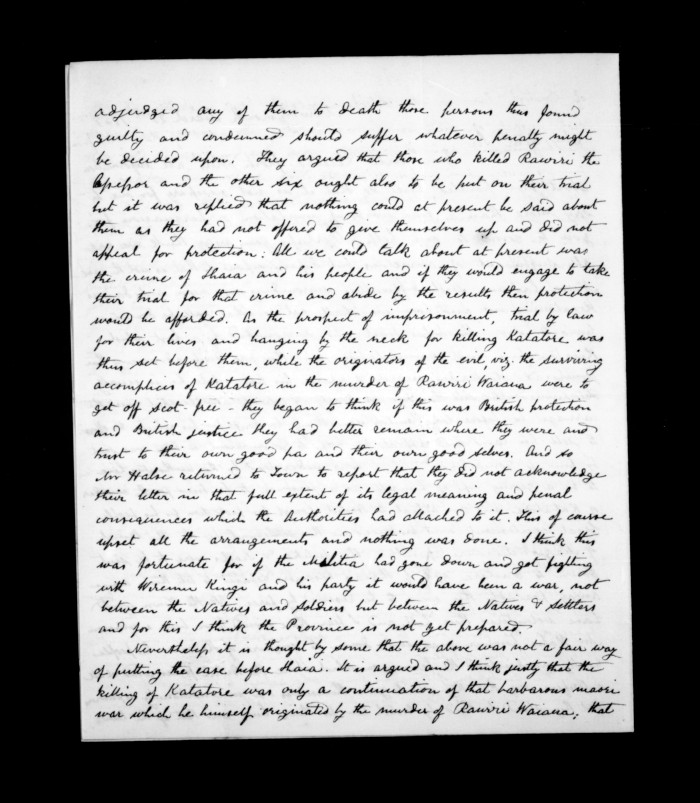 adjudged any of them to death those persons thus found
guilty and condemned should suffer whatever penalty might
be decided upon. They argued that those who killed Rawiri the
Assessor and the other six ought also to be put on their trial
but it was replied that nothing could at present be said about
them as they had not offered to give themselves up and did not
appeal for protection: All we could talk about at present was
the crime of Ihaia and his people and if they would engage to take
their trial for that crime and abide by the results then protection
would be afforded. As the prospect of imprisonment, trial by law
for their lives and hanging by the neck for killing Katatore was
thus set before them, while the originators of the evil, viz. the surviving
accomplices of Katatore in the murder of Rawiri Waiaua were to
get off scot-free - they began to think if this was British protection
and British justice they had better remain where they were and
trust to their own good pa and their own good selves. And so
Mr Halse returned to Town to report that they did not acknowledge
their letter in that full extent of its legal meaning and penal
consequences which the Authorities had attached to it. This of course
upset all the arrangements and nothing was done. I think this
was fortunate for if the Militia had gone down and got fighting
with Wiremu Kingi and his party it would have been a war, not
between the Natives and Soldiers but between the Natives & Settlers
and for this I think the Province is not yet prepared.
Nevertheless it is thought by some that the above was not a fair way
of putting the case before Ihaia. It is argued and I think justly that the
killing of Katatore was only a continuation of that barbarous maori
war which he himself originated by the murder of Rawiri Waiaua; that